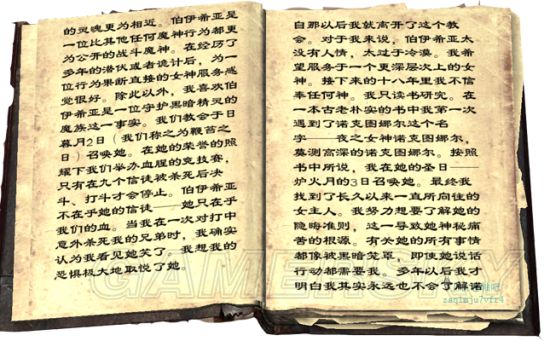 的灵魂更为相近。伯伊希亚是
一位比其他任何魔神行为都更
为公开的战斗魔神。在经历了
多年的潜伏或者诡计后，为一
位行为果断直接的女神服务感
觉很好。除此以外，我喜欢伯
伊希亚是一位守护黑暗精灵的
魔族这一事实。我们教会于日
暮月2日（我们称之为鞭笞之
日）召唤她。在她的荣誉的照
耀下我们举办血腥的竞技赛，
只有在九个信徒被杀死后决
斗、打斗才会停止。伯伊希亚
不在乎她的信徒——她只在乎
我们的血。当我在一次对打中
意外杀死我的兄弟时，我确实
认为我看见她笑了——我想我的
恐惧极大地取悦了她。
自那以后我就离开了这个教
会。对于我来说，伯伊希亚太
没有人情，太过于冷漠。我希
望服务于一个更深层次上的女
神。接下来的十八年里我不信
奉任何神。我只读书研究。在
一本古老朴实的书中我第一次
遇到了诺克图娜尔这个名
字——夜之女神诺克图娜尔，
莫测高深的诺克图娜尔。按照
书中所说，我在她的圣日——
炉火月的3日召唤她。最终我
找到了长久以来一直所向往的
女主人。我努力想要了解她的
隐晦准则，这一导致她神秘痛
苦的根源。有关她的所有事情
都像被黑暗笼罩，即使她说话
行动都需要我。多年以后我才
明白我其实永远也不会了解诺
GAMERSKY
zaqimju7vfr4